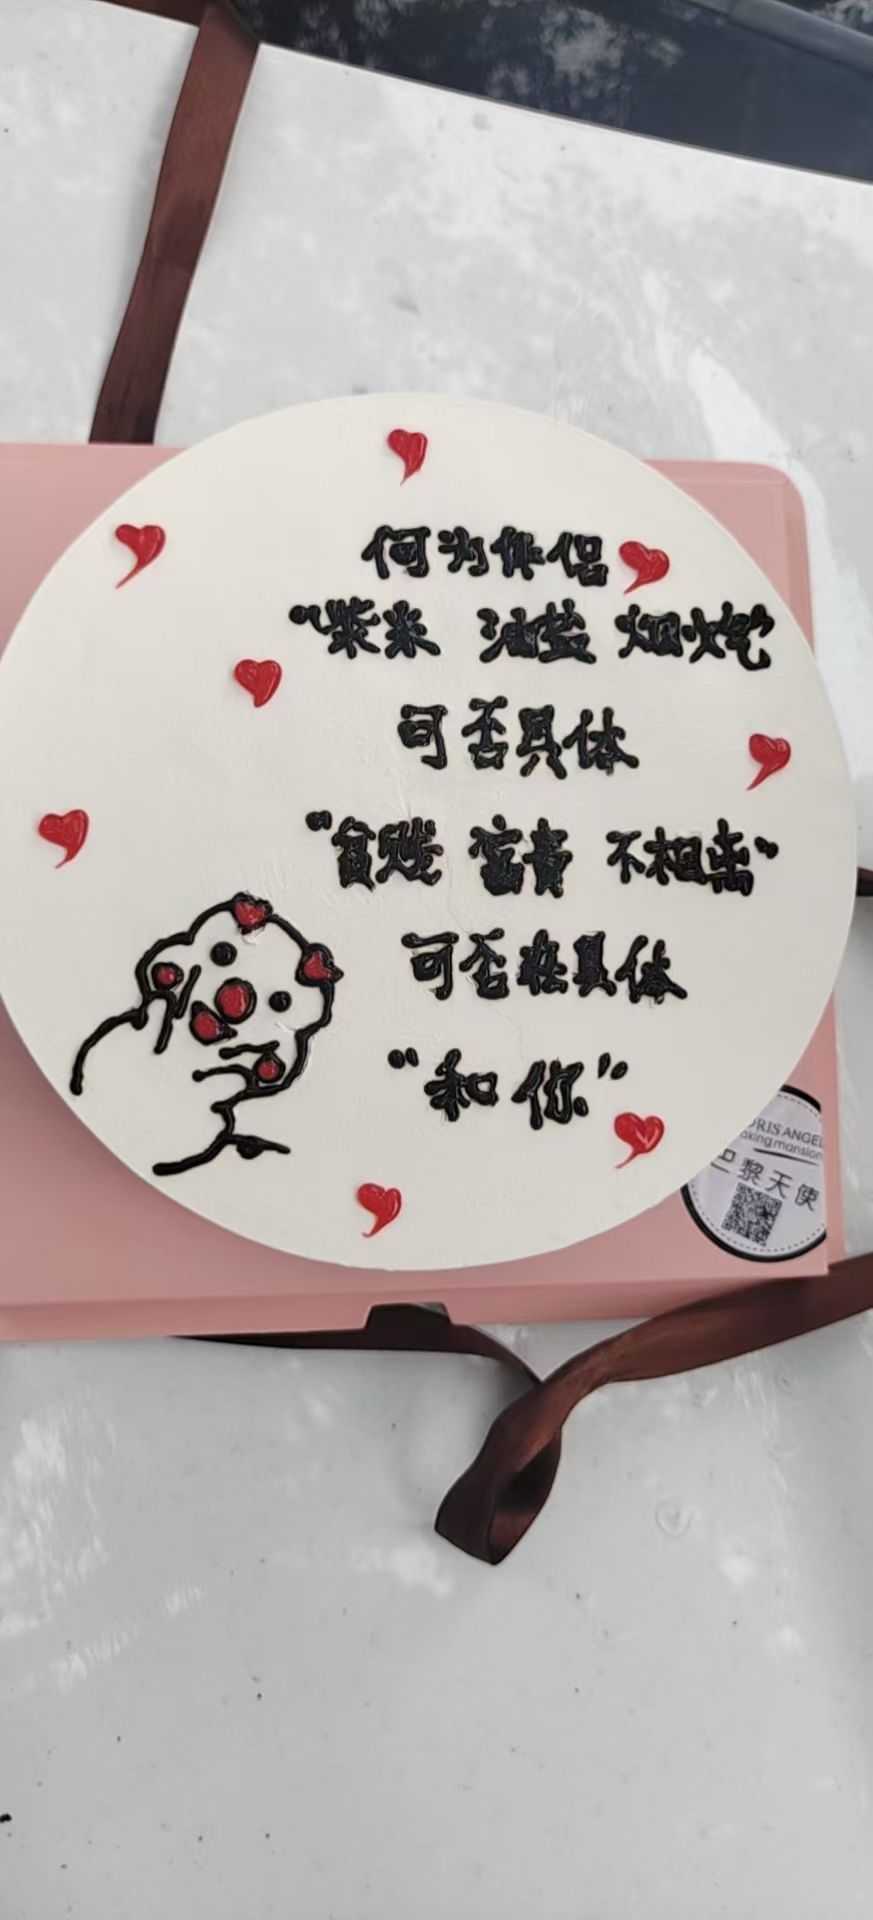 何为伴侣
"柴米 油盐 烟火
可否具体
"贫贱 富贵 不相离"
可否在具体
"和你"
ORIS ANGEL
aking mansion
巴黎天使